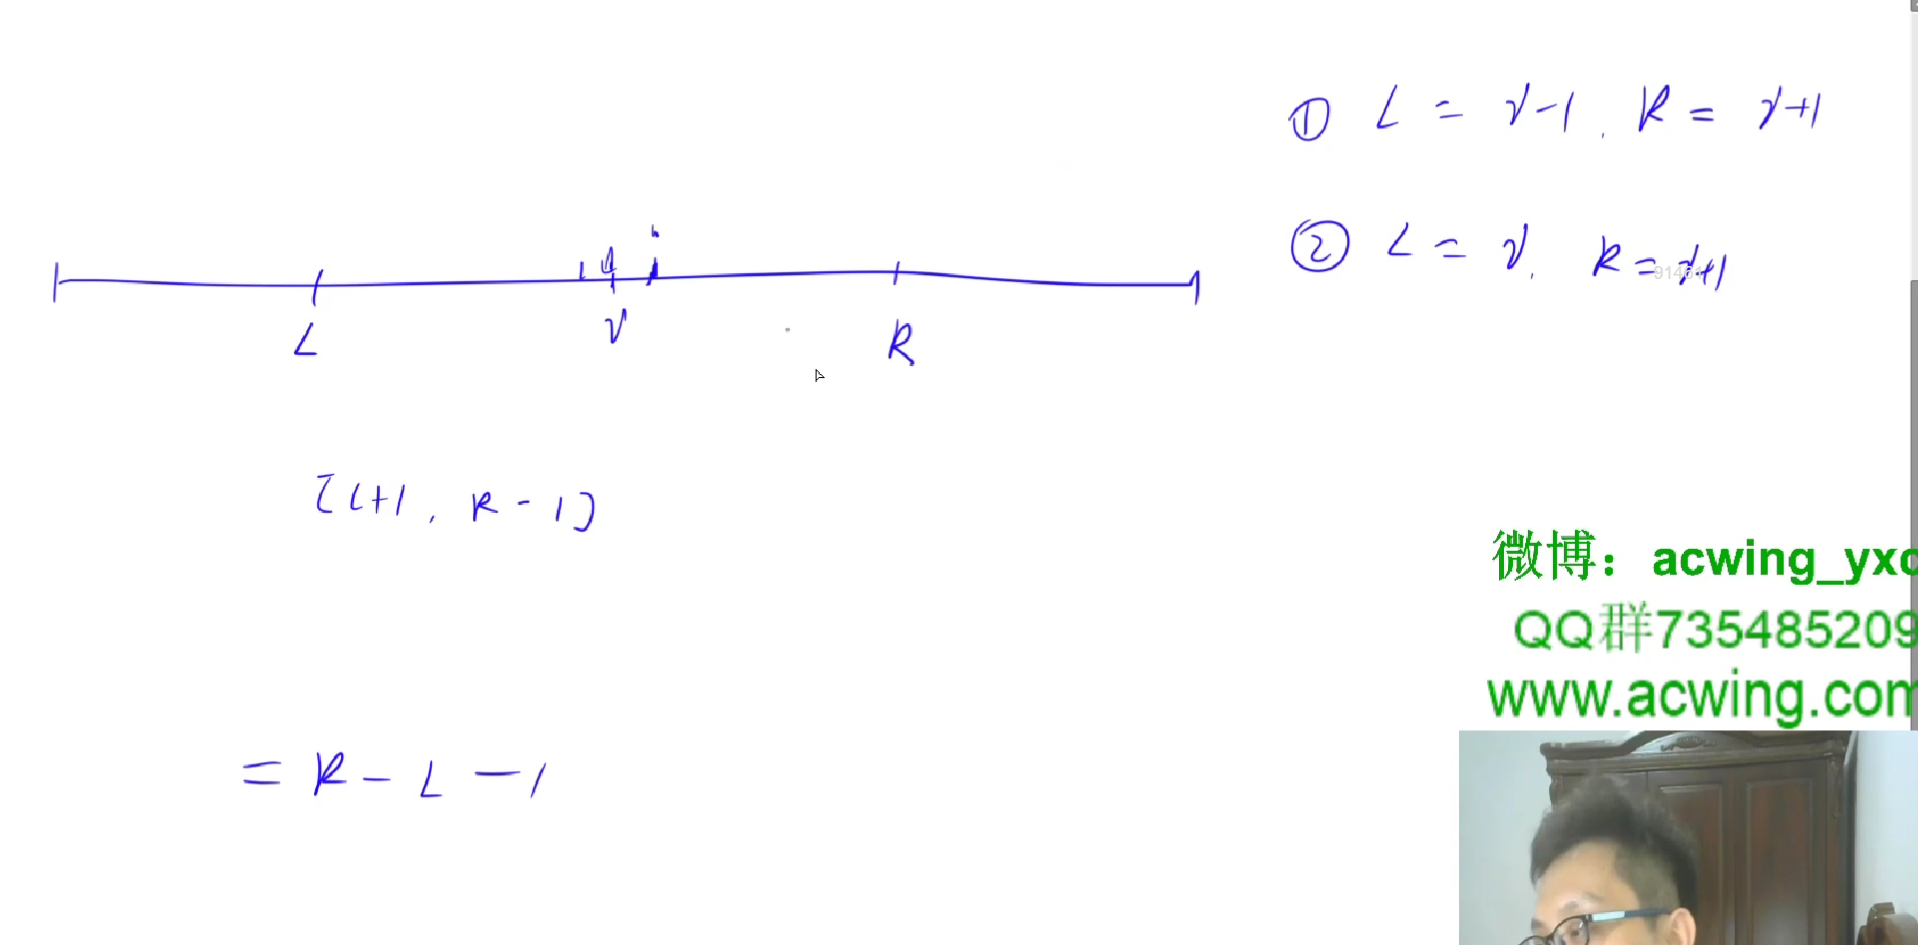 ① L = r-1, R = r+1
② L = r, R = r+1
i
L r R
[L+1, R-1]
= R - L - 1
微博：acwing_yxc
QQ群735485209
www.acwing.com